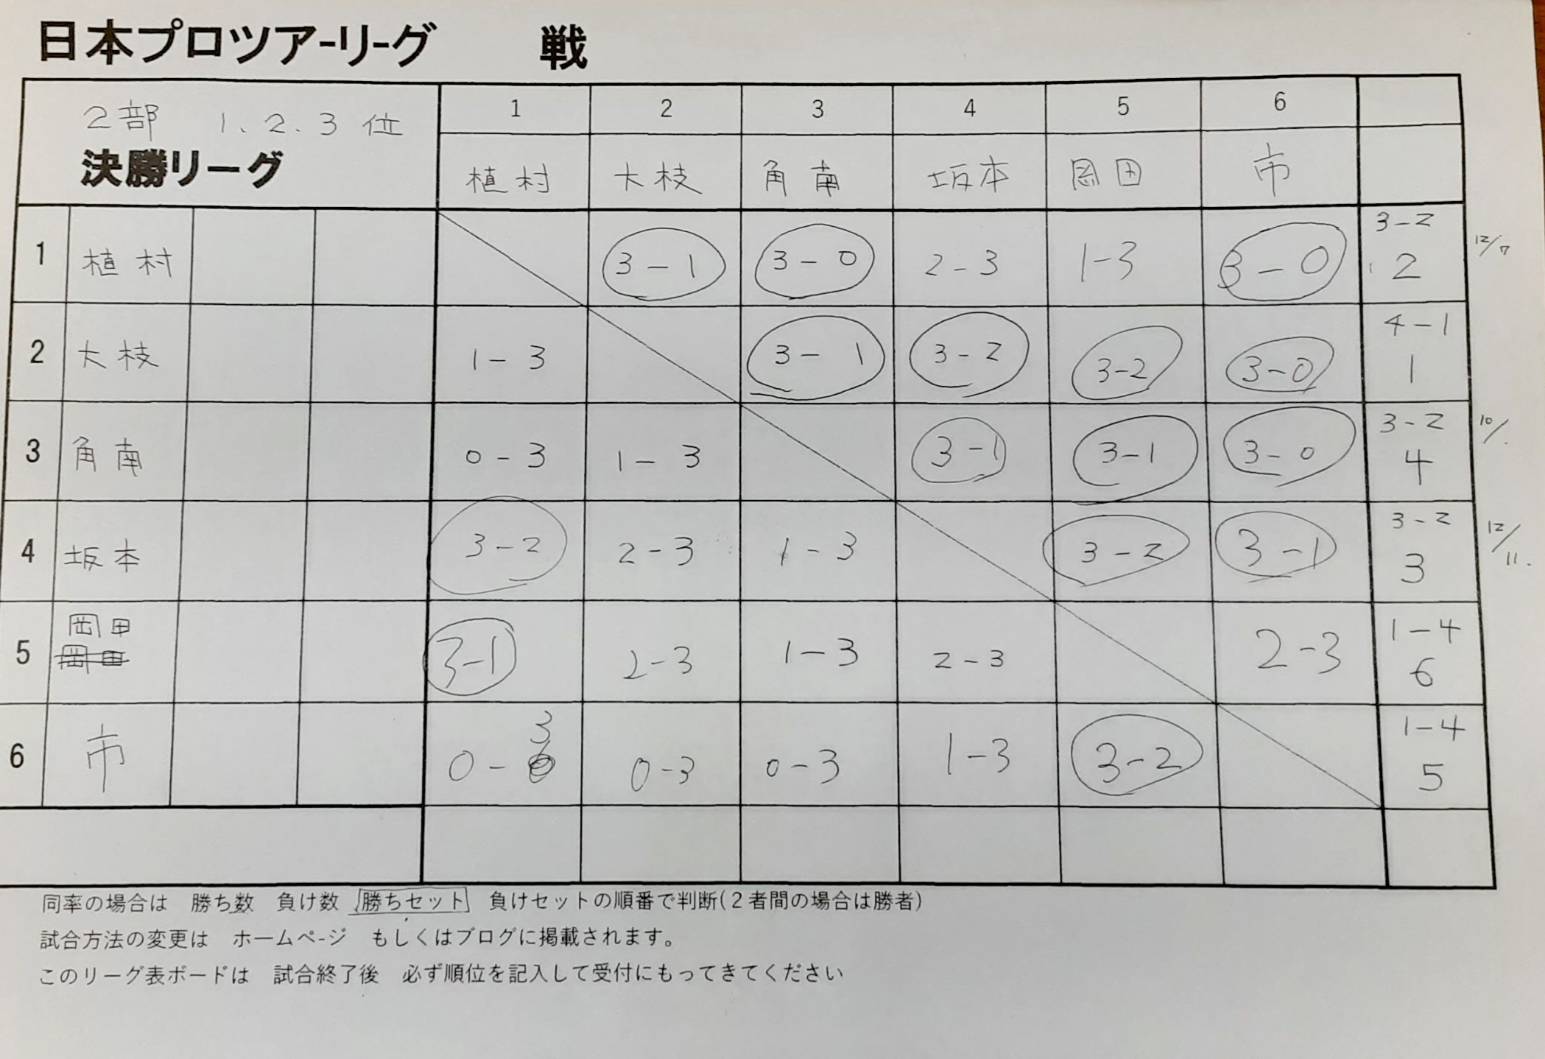 日本プロツアーリーグ 戦
2部 1.2.3位
決勝リーグ
1 2 3 4 5 6
植村 大枝 角南 坂本 岡田 市
1 植村 3-1 3-0 2-3 1-3 3-0 3-2 2 12/7
2 大枝 1-3 3-1 3-2 3-2 3-0 4-1 1
3 角南 0-3 1-3 3-1 3-1 3-0 3-2 4 10/.
4 坂本 3-2 2-3 1-3 3-2 3-1 3-2 3 12/11.
5 岡田 3-1 2-3 1-3 2-3 2-3 1-4 6
岡田
6 市 0-3 0-3 0-3 1-3 3-2 1-4 5
同率の場合は 勝ち数 負け数 勝ちセット 負けセットの順番で判断(2者間の場合は勝者)
試合方法の変更は ホームページ もしくはブログに掲載されます。
このリーグ表ボードは 試合終了後 必ず順位を記入して受付にもってきてください